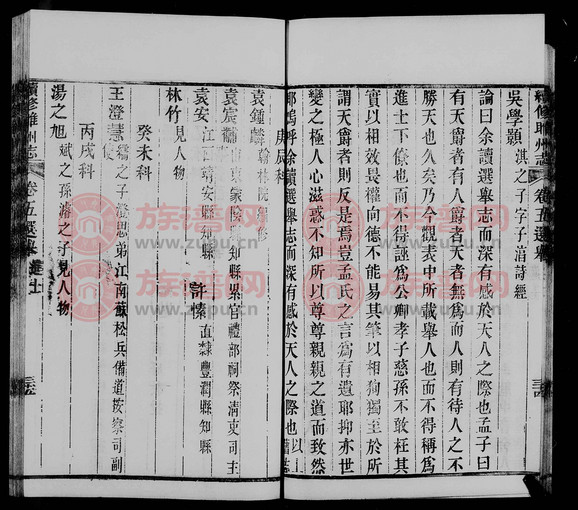 續修睢州志 卷五選舉
吳學顥 淇之子字子淯詩經
論曰余讀選舉志而深有感於天人之際也孟子曰
有天爵者有人爵者天者無爲而人則有待人之不
勝天也久矣乃今觀表中所載舉人也而不得稱爲
進士下僚也而不得誣爲公卿孝子慈孫不敢枉其
實以相效世畏權向德不能易其筆以相狥獨至於所
謂天爵者則反是焉豈孟氏之言爲有遺耶抑亦世
變之極人心滋惑不知所以尊尊親親之道而致然
耶嗚呼余讀選舉志而深有感於天人之際也以
庚辰科
袁鍾麟
袁宸黼 山東蒙陰知縣累官禮部祠祭清吏司主
袁安 江西靖安縣知縣
許愫 直隸豐潤縣知縣
林竹 見人物
癸未科
王澄慧 之子澄思弟江南蘇松兵備道按察司副
丙戌科
湯之旭 斌之孫溥之子見人物
續修睢州志 卷五選舉
族谱网
www.zupu.cn